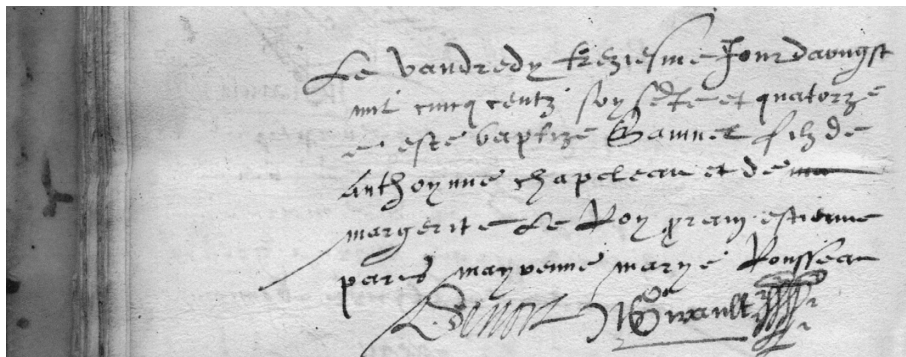 Le vandredy treziesme Jour daougst
mil cincq centz soysᵉte et quatorze
a este baptize Samuel filz de
Anthoynne chapeleau et de ma
margerite Le Roy prain estienne
pares mayrenne marye Rousseau
Benoist Girault